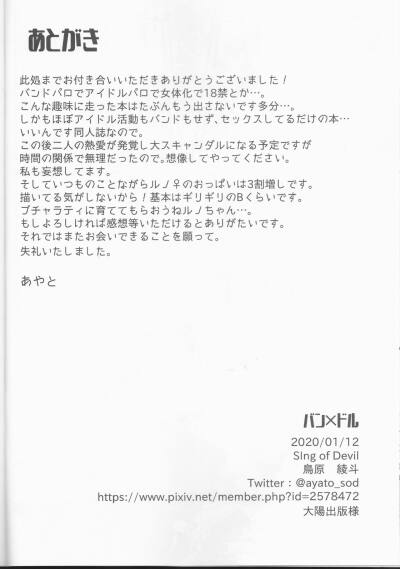 あとがき
此処までお付き合いいただきありがとうございました！
バンドパロでアイドルパロで女体化で18禁とか…。
こんな趣味に走った本はたぶんもう出さないです多分…。
しかもほぼアイドル活動もバンドもせず、セックスしてるだけの本…
いいんです同人誌なので。
この後二人の熱愛が発覚し大スキャンダルになる予定ですが
時間の関係で無理だったので。想像してやってください。
私も妄想してます。
そしていつものことながらルノ♀のおっぱいは3割増しです。
描いてる気がしないから！基本はギリギリのBくらいです。
ブチャラティに育ててもらおうねルノちゃん…。
もしよろしければ感想等いただけるとありがたいです。
それではまたお会いできることを願って。
失礼いたしました。
あやと
バン×ドル
2020/01/12
SIng of Devil
鳥原　綾斗
Twitter：@ayato_sod
https://www.pixiv.net/member.php?id=2578472
大陽出版様